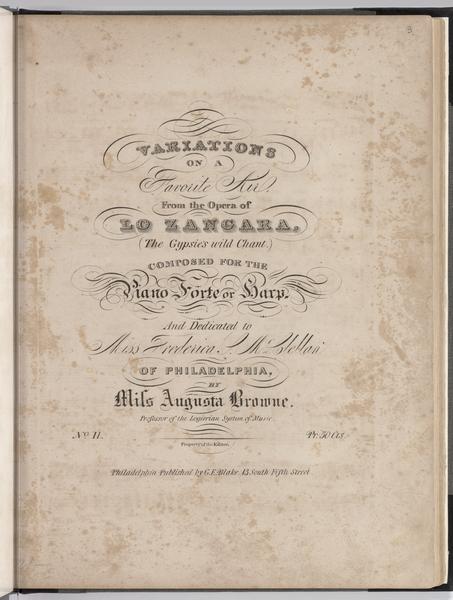 VARIATIONS
ON A
Favorite Air,
From the Opera of
LO ZANGARA,
(The Gypsies wild Chant.)
COMPOSED FOR THE
Piano Forte or Harp.
And Dedicated to
Miss Frederica McClellan
OF PHILADELPHIA,
BY
Miss Augusta Browne.
Professor of the Logierian System of Music.
No. 11. Pr. 50 Cts.
Property of the Editor.
Philadelphia Published by G. E. Blake 13 South Fifth Street